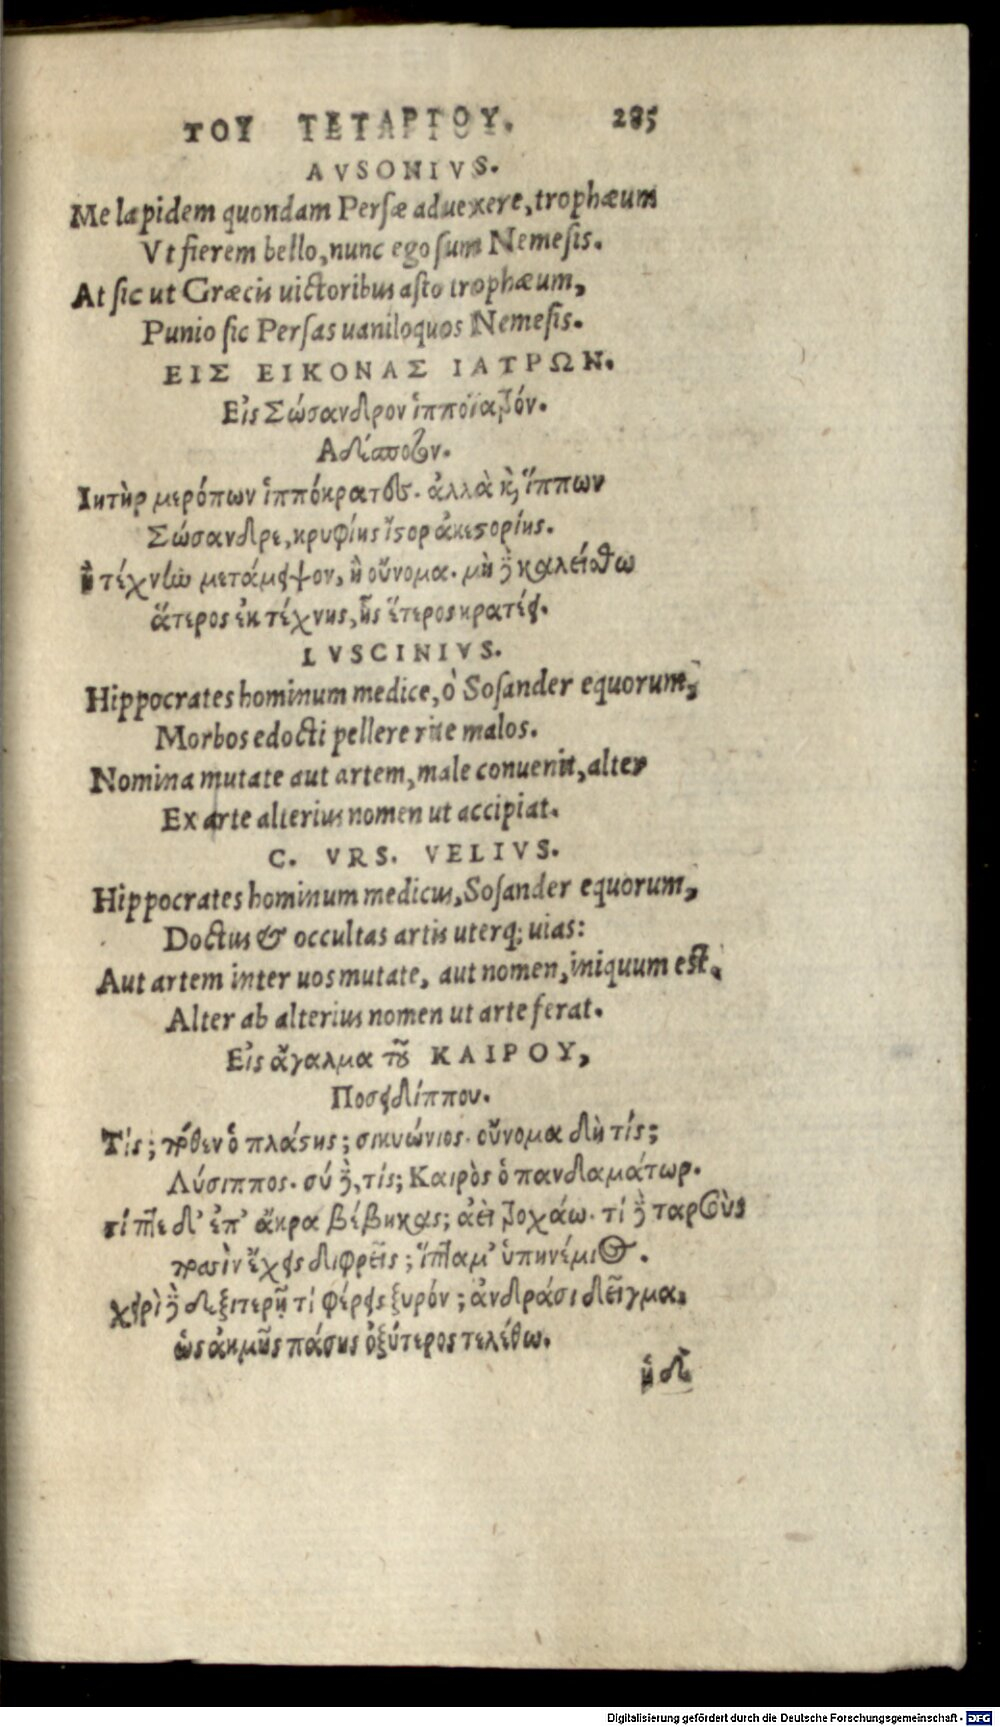 ΤΟΥ ΤΕΤΑΡΤΟΥ. 285
AVSONIVS.
Me lapidem quondam Persæ aduexere, trophæum
Vt fierem bello, nunc ego sum Nemesis.
At sic ut Græcis uictoribus asto trophæum,
Punio sic Persas uaniloquos Nemesis.
ΕΙΣ ΕΙΚΟΝΑΣ ΙΑΤΡΩΝ.
Εἰς Σώσανδρον ἱπποϊατρόν.
Αδέσποτον.
Ιητὴρ μερόπων ἱππόκρατες. ἀλλὰ κὶ ἵππων
Σώσανδρε, κρυφίης ἴστορ ἀκεστορίης.
ἢ τέχνην μετάμειψον, ἢ οὔνομα. μὴ δὲ καλείσθω
ἅτερος ἐκ τέχνης, ἧς ἕτερος κρατέει.
LVSCINIVS.
Hippocrates hominum medice, ò Sosander equorum,
Morbos edocti pellere rite malos.
Nomina mutate aut artem, male conuenit, alter
Ex arte alterius nomen ut accipiat.
C. VRS. VELIVS.
Hippocrates hominum medicus, Sosander equorum,
Doctus & occultas artis uterq; uias:
Aut artem inter uos mutate, aut nomen, iniquum est,
Alter ab alterius nomen ut arte ferat.
Εἰς ἄγαλμα τοῦ ΚΑΙΡΟΥ,
Ποσειδίππου.
Τίς; πόθεν ὁ πλάστης; σικυώνιος. οὔνομα δὴ τίς;
Λύσιππος. σύ δὲ, τίς; Καιρὸς ὁ πανδαμάτωρ.
τίπτε δ' ἐπ' ἄκρα βέβηκας; ἀεὶ τροχάω. τί δὲ ταρσοὺς
ποσὶν ἔχεις διφυεῖς; ἵπταμ' ὑπηνέμιος.
χειρὶ δὲ δεξιτερῇ τί φέρεις ξυρόν; ἀνδράσι δεῖγμα,
ὡς ἀκμῆς πάσης ὀξύτερος τελέθω.
ἡ δὲ